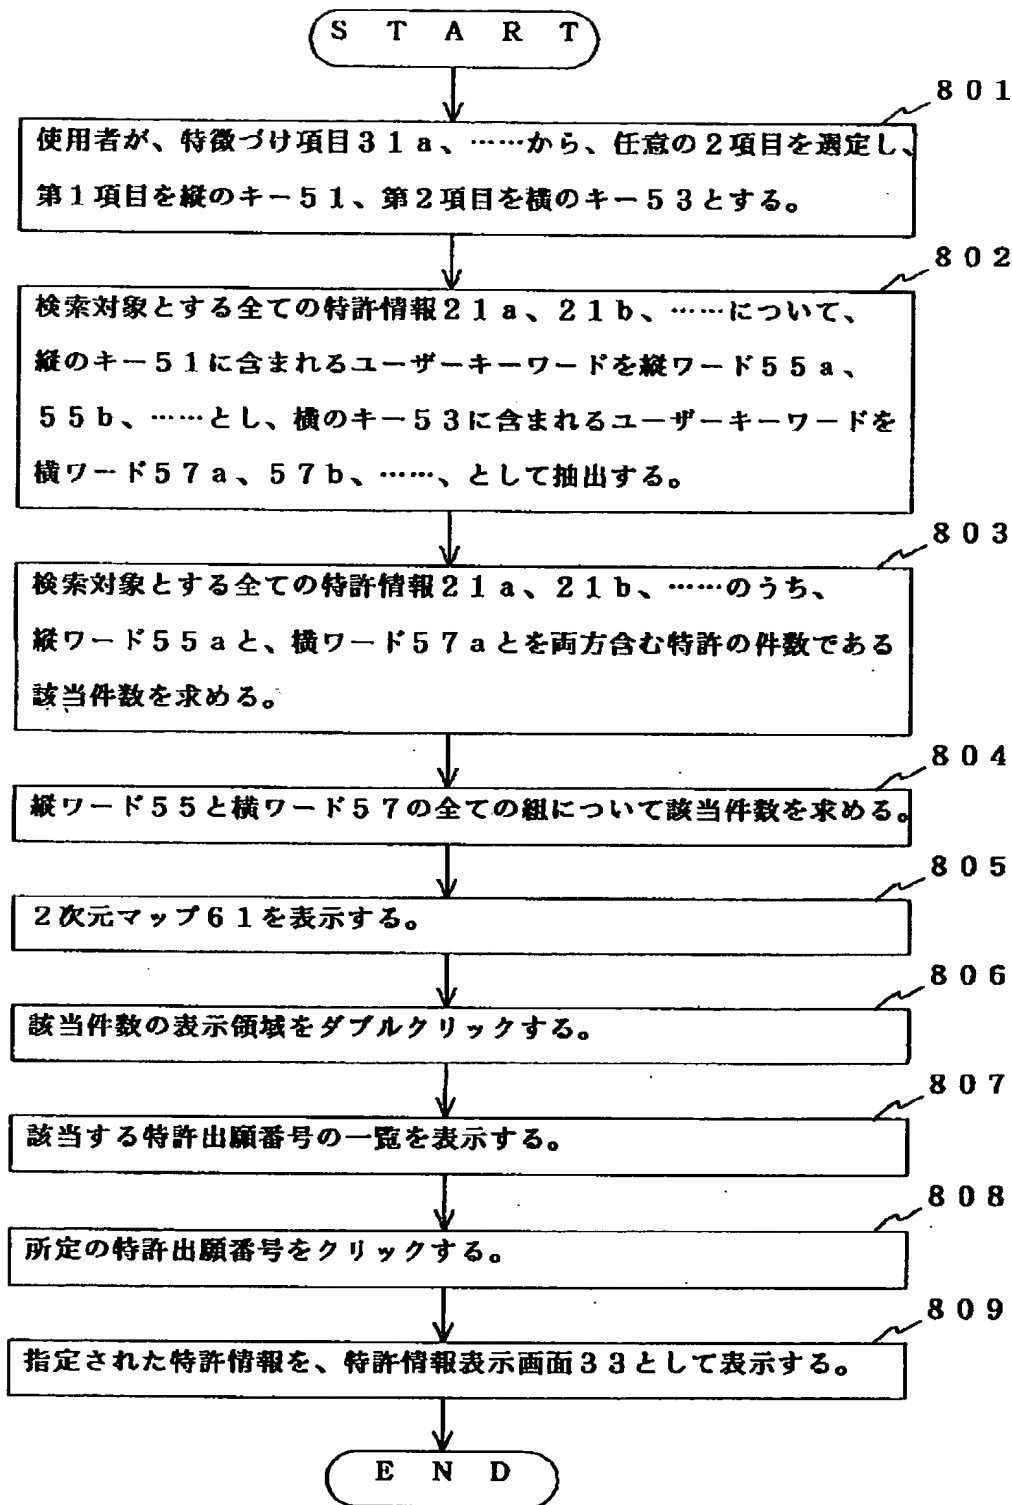 ＳＴＡＲＴ
８０１
使用者が、特徴づけ項目３１ａ、……から、任意の２項目を選定し、
第１項目を縦のキー５１、第２項目を横のキー５３とする。
８０２
検索対象とする全ての特許情報２１ａ、２１ｂ、……について、
縦のキー５１に含まれるユーザーキーワードを縦ワード５５ａ、
５５ｂ、……とし、横のキー５３に含まれるユーザーキーワードを
横ワード５７ａ、５７ｂ、……、として抽出する。
８０３
検索対象とする全ての特許情報２１ａ、２１ｂ、……のうち、
縦ワード５５ａと、横ワード５７ａとを両方含む特許の件数である
該当件数を求める。
８０４
縦ワード５５と横ワード５７の全ての組について該当件数を求める。
８０５
２次元マップ６１を表示する。
８０６
該当件数の表示領域をダブルクリックする。
８０７
該当する特許出願番号の一覧を表示する。
８０８
所定の特許出願番号をクリックする。
８０９
指定された特許情報を、特許情報表示画面３３として表示する。
ＥＮＤ